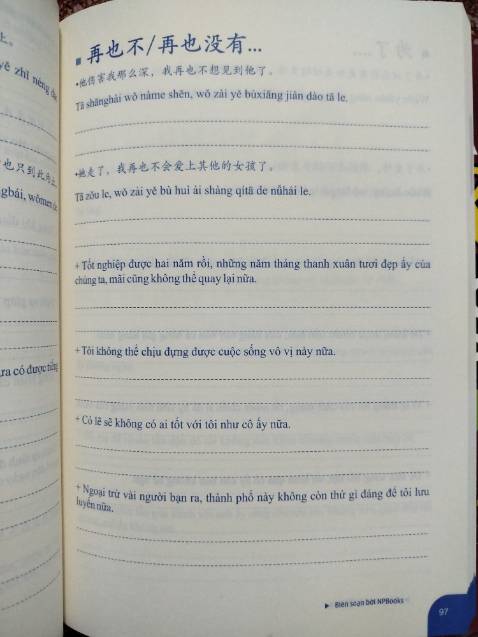 上。
yě zhǐ néng
也只到此为止
gbái, wǒmen
ra có được tiếng
再也不/再也没有...
•他伤害我那么深，我再也不想见到他了。
Tā shānghài wǒ nàme shēn, wǒ zài yě bùxiǎng jiàn dào tā le.
•她走了，我再也不会爱上其他的女孩了。
Tā zǒu le, wǒ zài yě bù huì ài shàng qítā de nǚhái le.
+ Tốt nghiệp được hai năm rồi, những năm tháng thanh xuân tươi đẹp ấy của
chúng ta, mãi cũng không thể quay lại nữa.
+ Tôi không thể chịu đựng được cuộc sống vô vị này nữa.
+ Có lẽ sẽ không có ai tốt với tôi như cô ấy nữa.
+ Ngoại trừ vài người bạn ra, thành phố này không còn thứ gì đáng để tôi lưu
luyến nữa.
Biên soạn bởi NPBooks
97